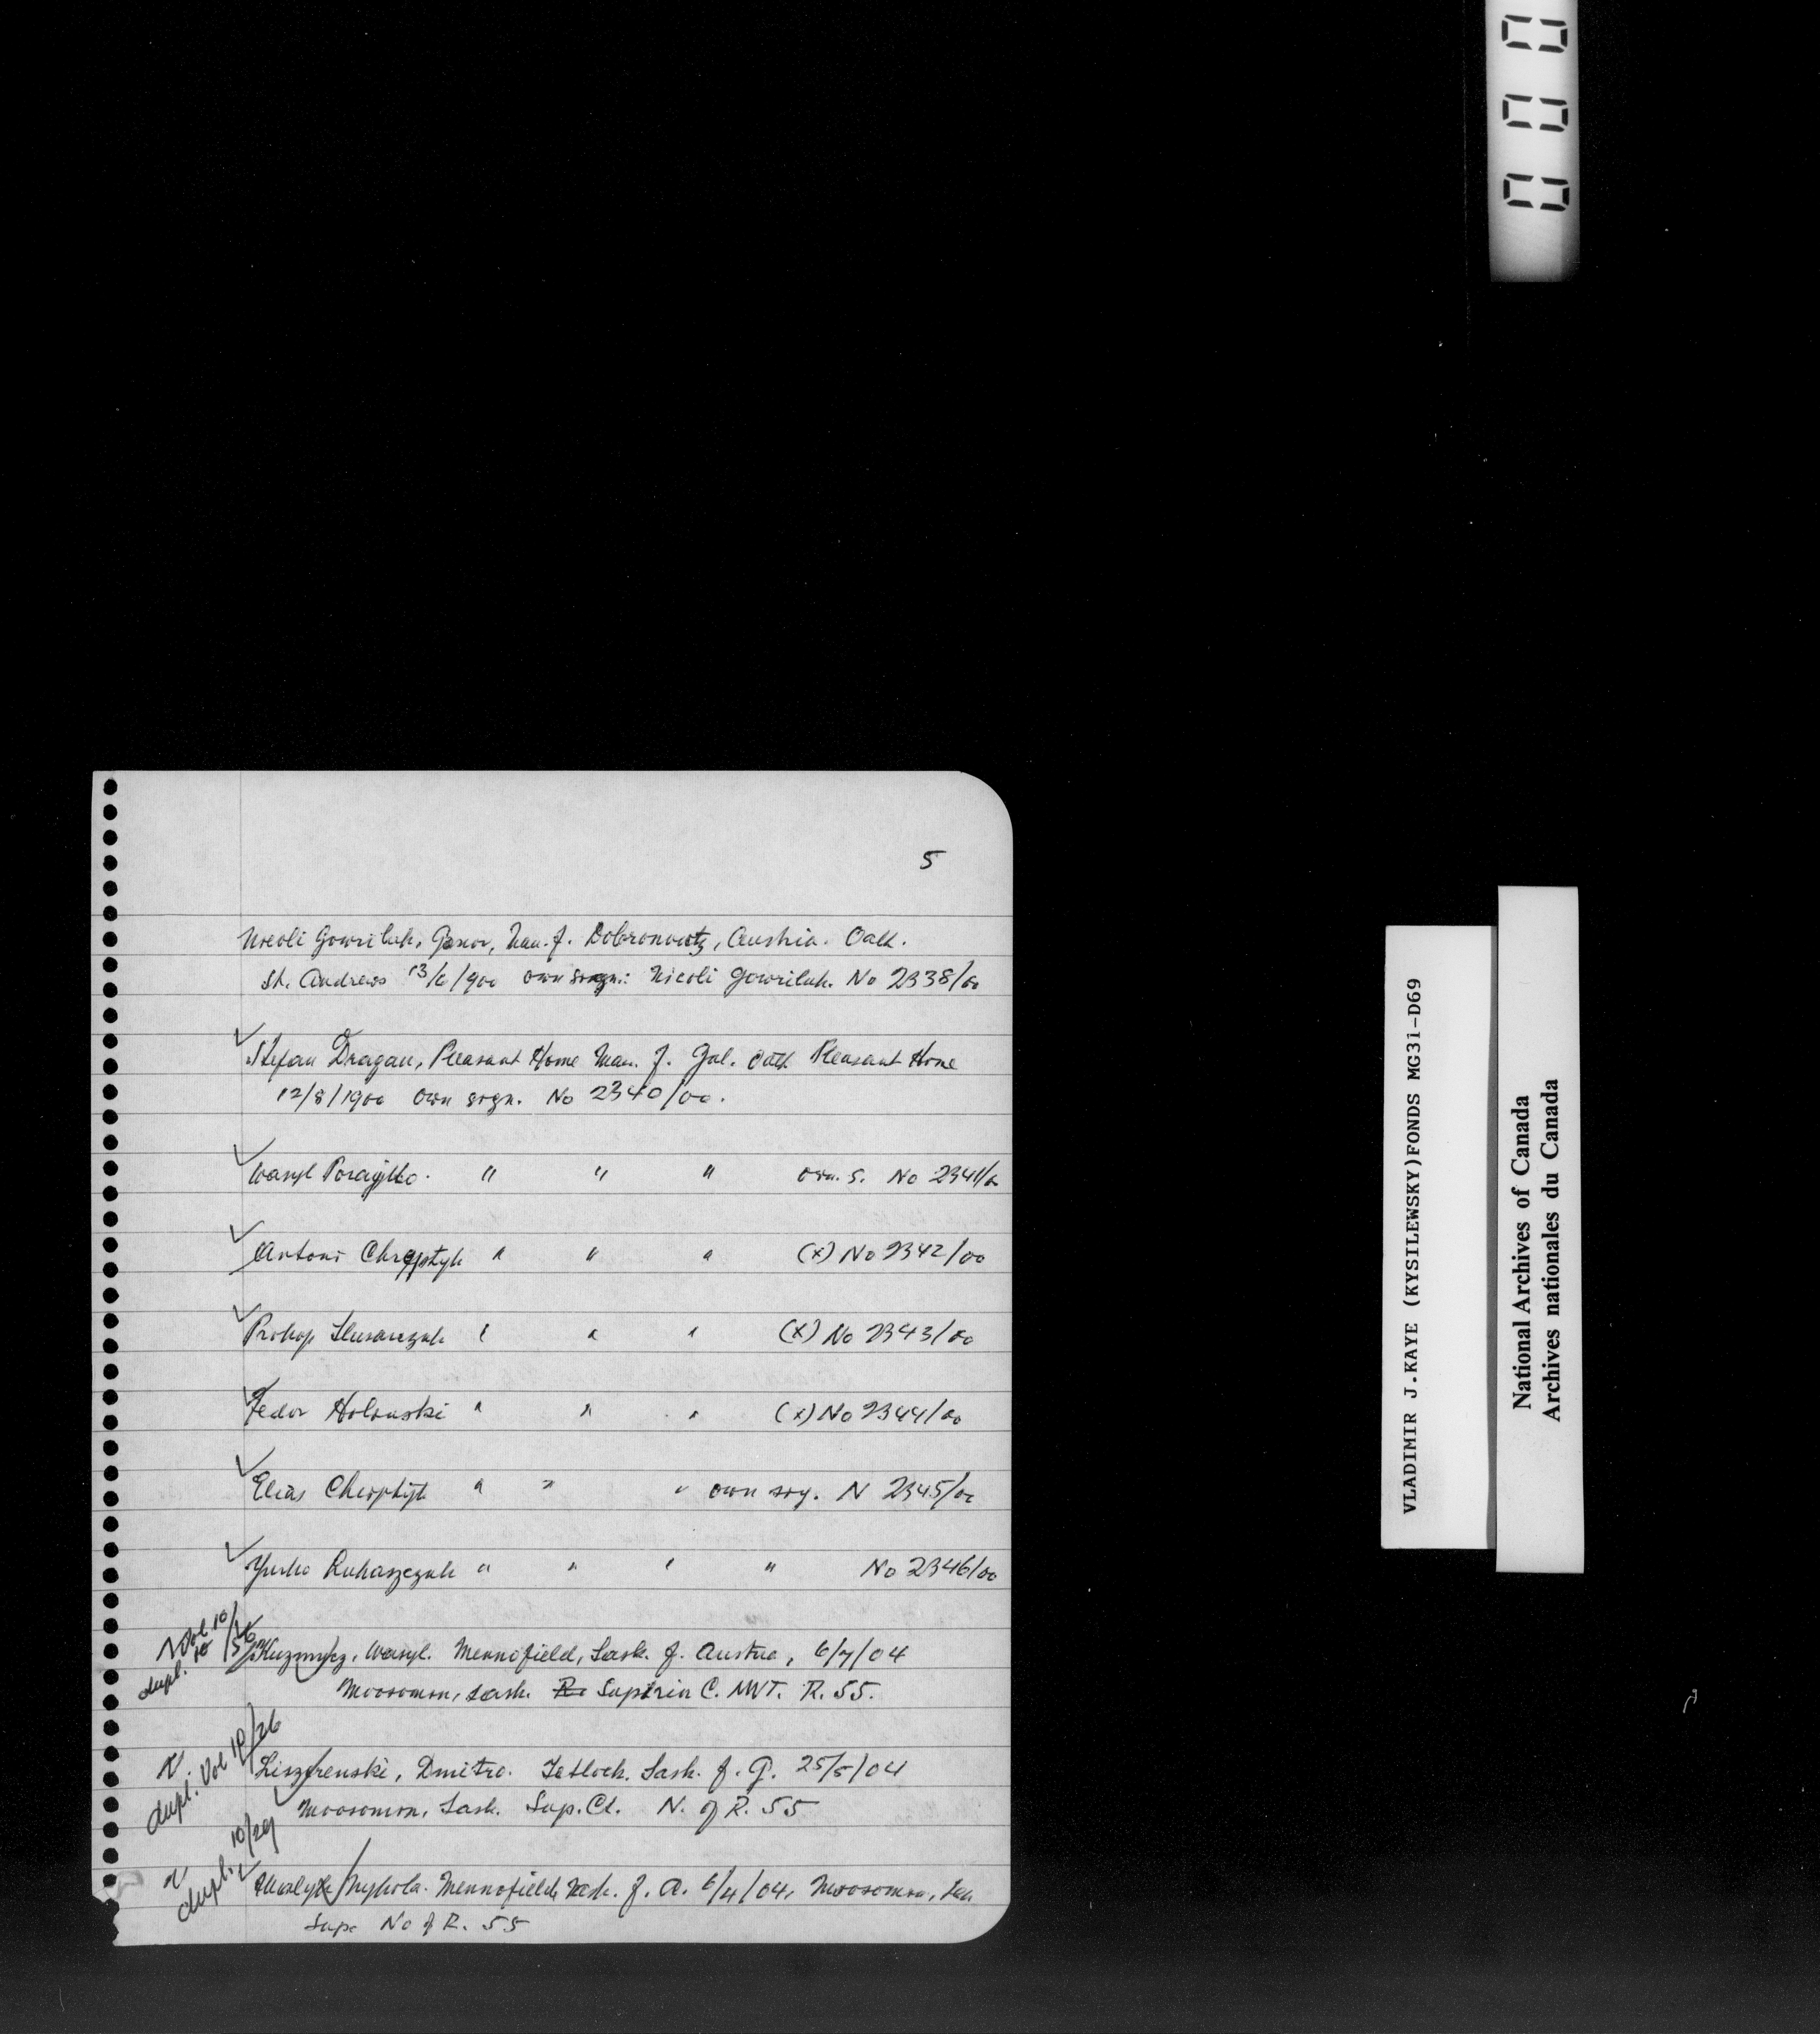 5
Nicoli Gowriluk, Gonor, Man. f. Dobronoutz, Austria. Oath.
St. Andrews 13/6/900 own sign: Nicoli Gowriluk. No 2338/00
Stefan Dragan, Pleasant Home Man. f. Gal. Oath Pleasant Home
12/8/1900 own sign. No 2340/00.
Wasyl " " " own. S. No 2341/00
Antoni Chreptyk " " " (x) No 2342/00
Prokop Slusarczuk " " " (x) No 2343/00
Fedor Holonski " " " (x) No 2344/00
Elias Chreptyk " " " own sig. N 2345/00
Yurko Lukaszczuk " " " " No 2346/00
Vol. 10/56
dupl. 10
Kuzmycz, Wasyl. Mennofield, Sask. f. Austria, 6/7/04
Moosomin, Sask. C. NWT. R. 55.
dupl. Vol 10/26
Dmitro. Tetlock. Sask. f. G. 25/5/04
Moosomin, Sask. Sup. Ct. N. of R. 55
dupl. 10/29
Mykola. Mennofield, Sask. f. A. 6/4/04, Moosomin,
Supr No of R. 55
000
VLADIMIR J.KAYE (KYSILEWSKY)FONDS MG31-D69
National Archives of Canada
Archives nationales du Canada